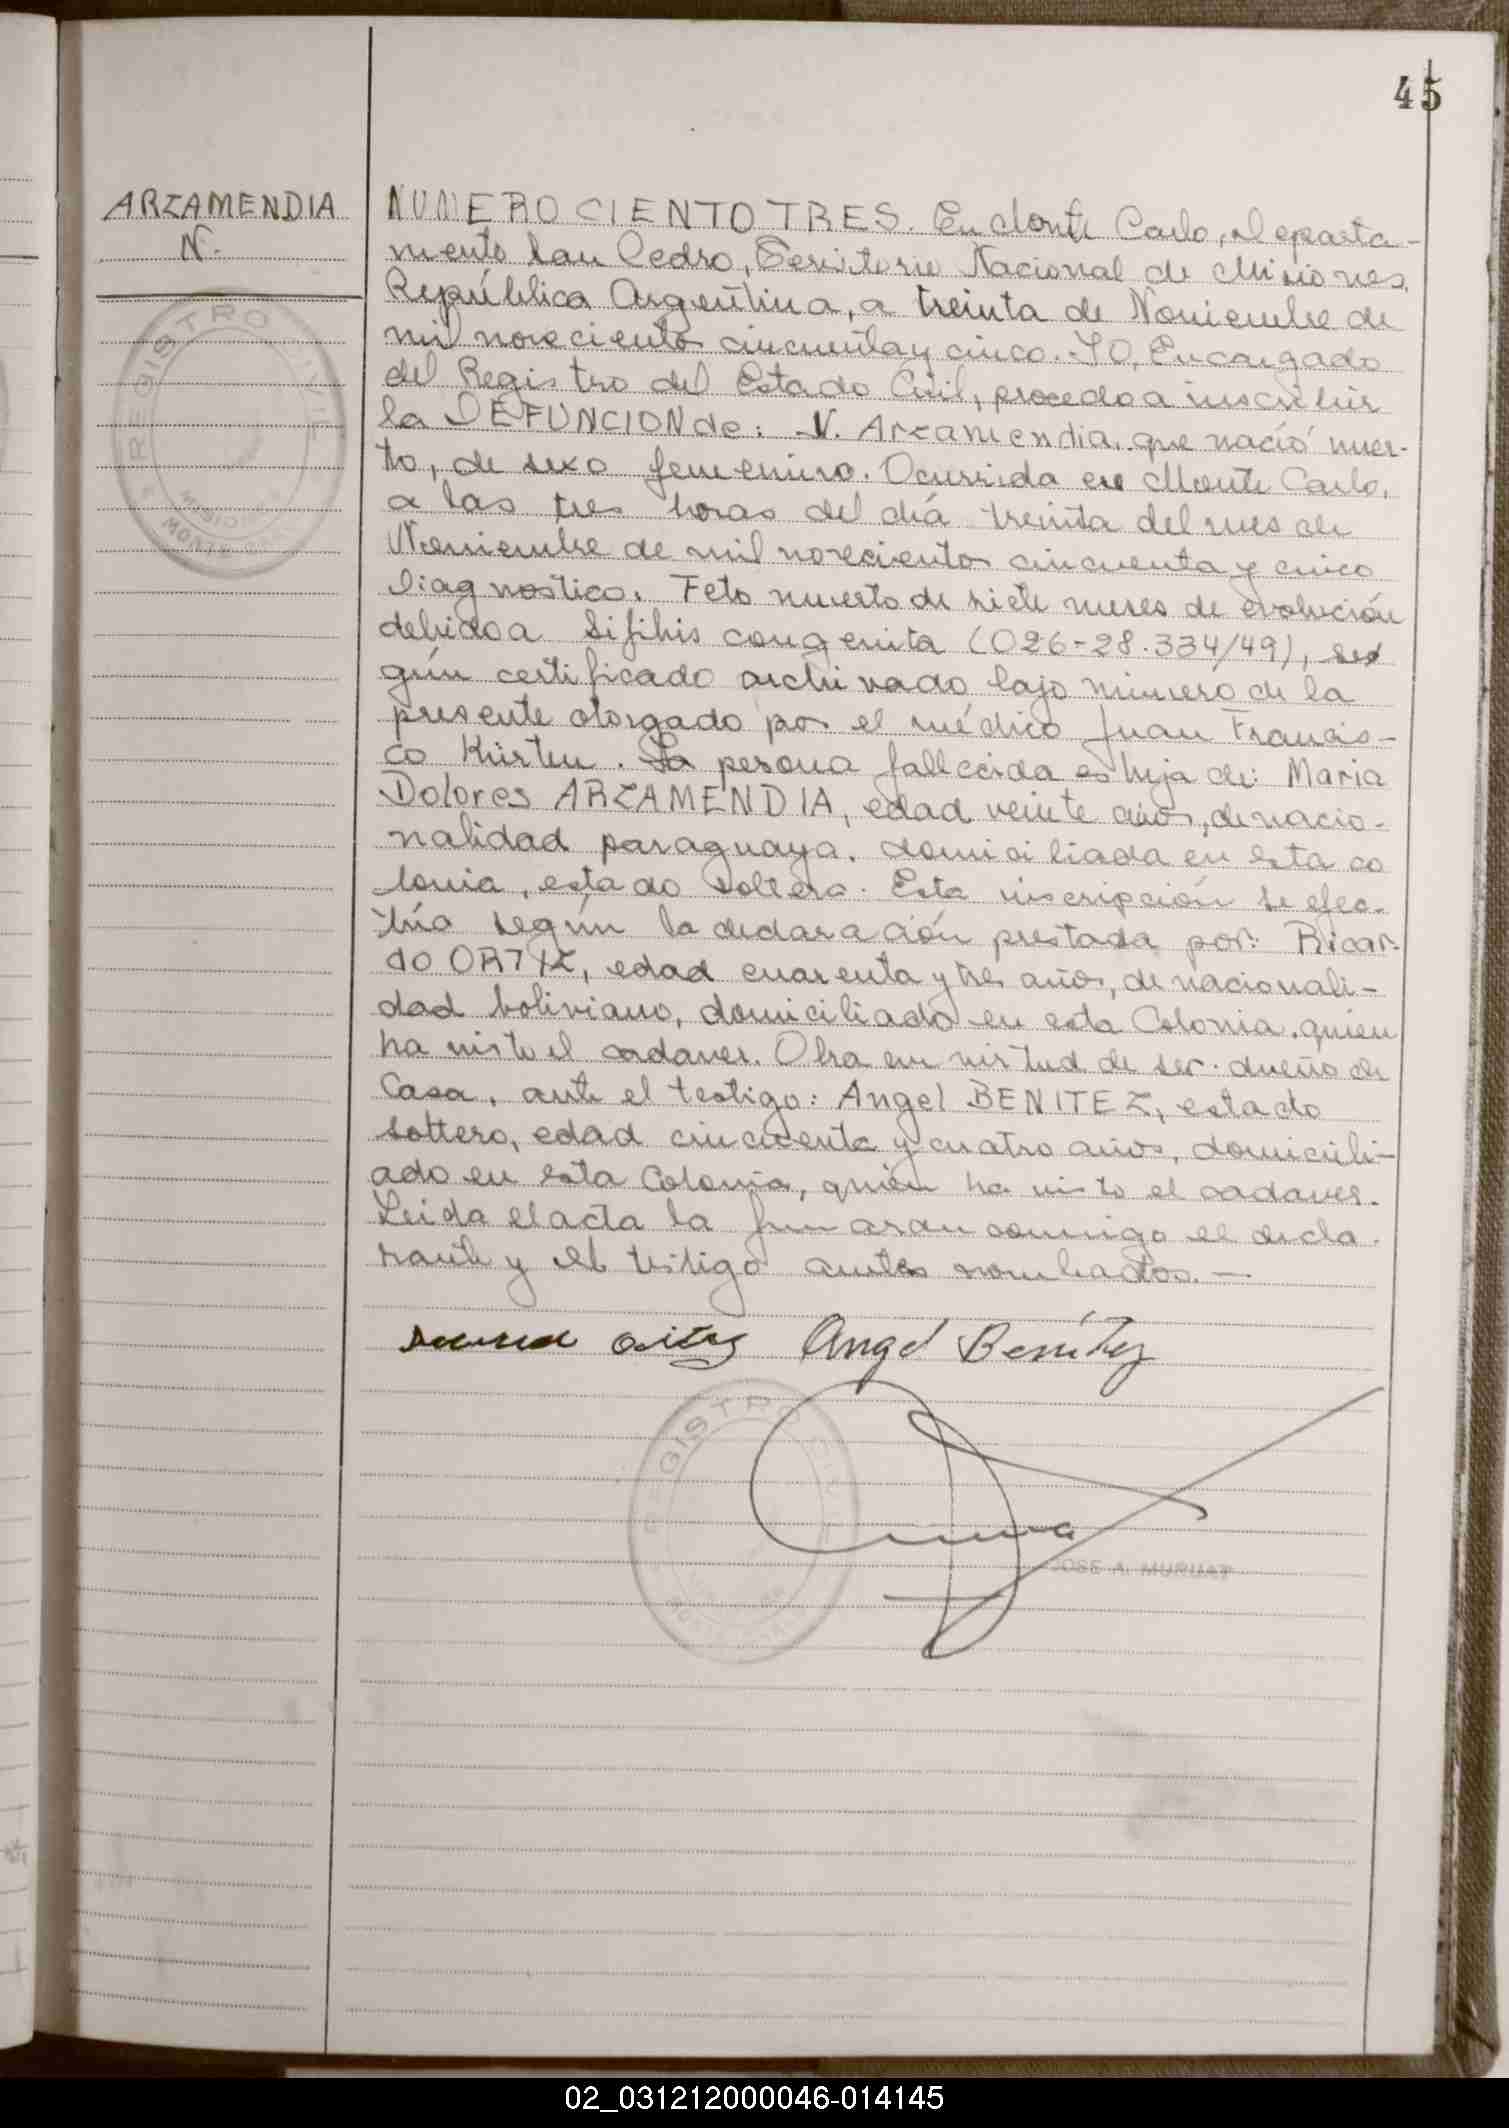 45
ARZAMENDIA
N.
NUMERO CIENTO TRES. En Monte Carlo, Departa-
mento San Pedro, Territorio Nacional de Misiones,
República Argentina, a treinta de Noviembre de
mil novecientos cincuenta y cinco. YO, Encargado
del Registro del Estado Civil, procedo a inscribir
la DEFUNCION de: N. Arzamendia, que nació muer-
to, de sexo femenino. Ocurrida en Monte Carlo,
a las tres horas del día treinta del mes de
Noviembre de mil novecientos cincuenta y cinco
Diagnostico. Feto muerto de siete meses de evolución
debido a Sifilis congenita (026-28.334/49), se
gún certificado archivado bajo número de la
presente otorgado por el médico Juan Francis-
co Kirsten. La persona fallecida es hija de: Maria
Dolores ARZAMENDIA, edad veinte años, de nacio-
nalidad paraguaya, domiciliada en esta co
lonia, estado soltera. Esta inscripción se efec-
túa según la declaración prestada por: Ricar-
do ORTIZ, edad cuarenta y tres años, de nacionali-
dad boliviano, domiciliado en esta Colonia, quien
ha visto el cadaver. Obra en virtud de ser dueño de
Casa, ante el testigo: Angel BENITEZ, estado
soltero, edad cincuenta y cuatro años, domicili-
ado en esta Colonia, quién ha visto el cadaver.
Leida el acta la firmaran conmigo el decla-
rante y el testigo antes nombrados.—
Angel Benítez
REGISTRO CIVIL
MISIONES
MONTE CARLO
REGISTRO CIVIL
JOSE A. MURUAT
02_031212000046-014145